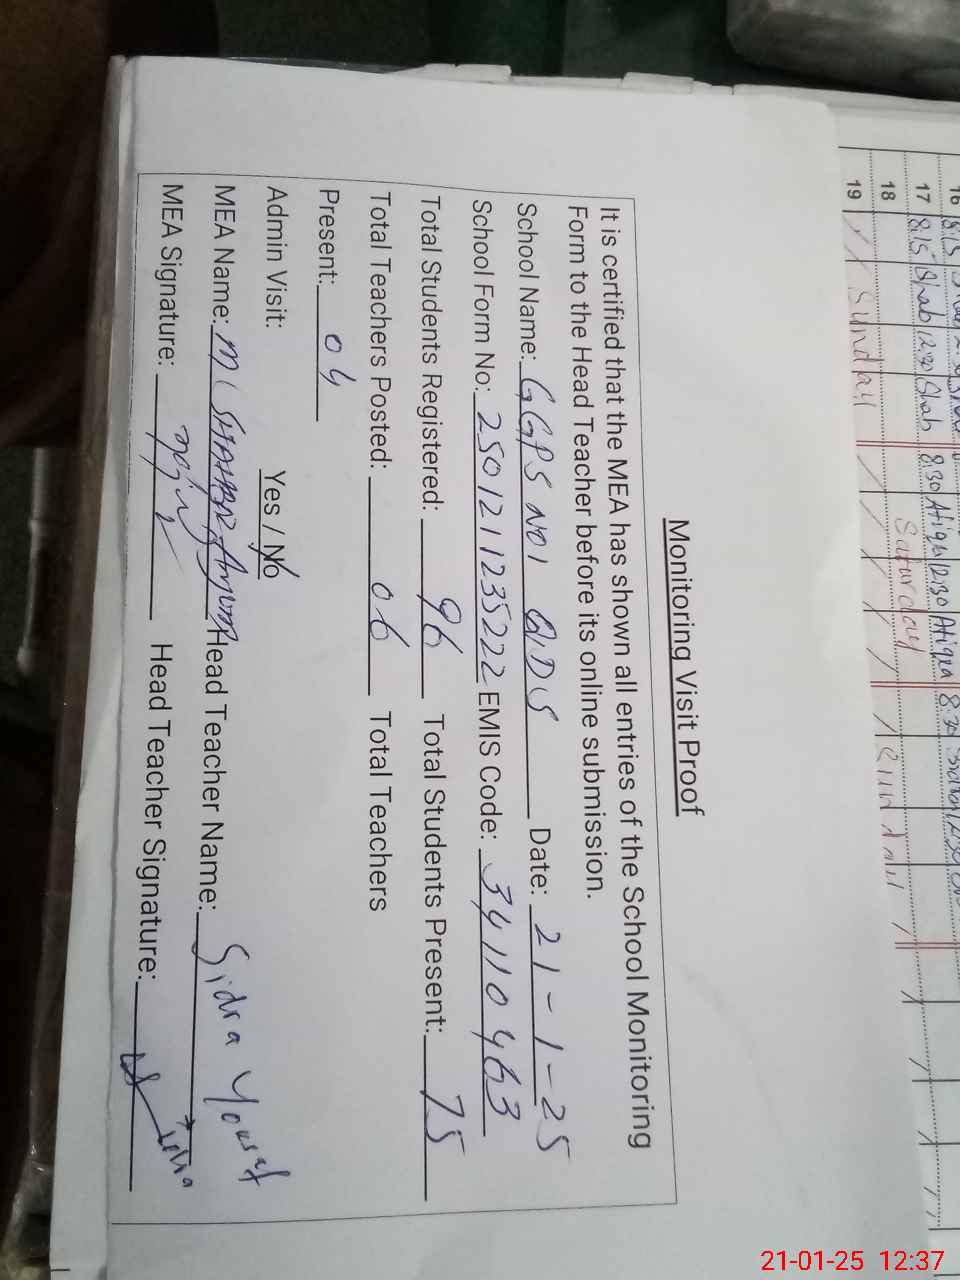 Monitoring Visit Proof
It is certified that the MEA has shown all entries of the School Monitoring
Form to the Head Teacher before its online submission.
School Name: GGPS NO1 QDS Date: 21-1-25
School Form No: 2501211235222 EMIS Code: 34110463
Total Students Registered: 96 Total Students Present: 75
Total Teachers Posted: 06 Total Teachers
Present: 04
Admin Visit: Yes / No
MEA Name: M Head Teacher Name: Sidra Yousaf
MEA Signature: Head Teacher Signature:
16 8:15
17 8:15 Shab 12:30 Shab 8:30 Atiqa 12:30 Atiqa 8:30
18 Saturday
19 Sunday Sunday
21-01-25 12:37